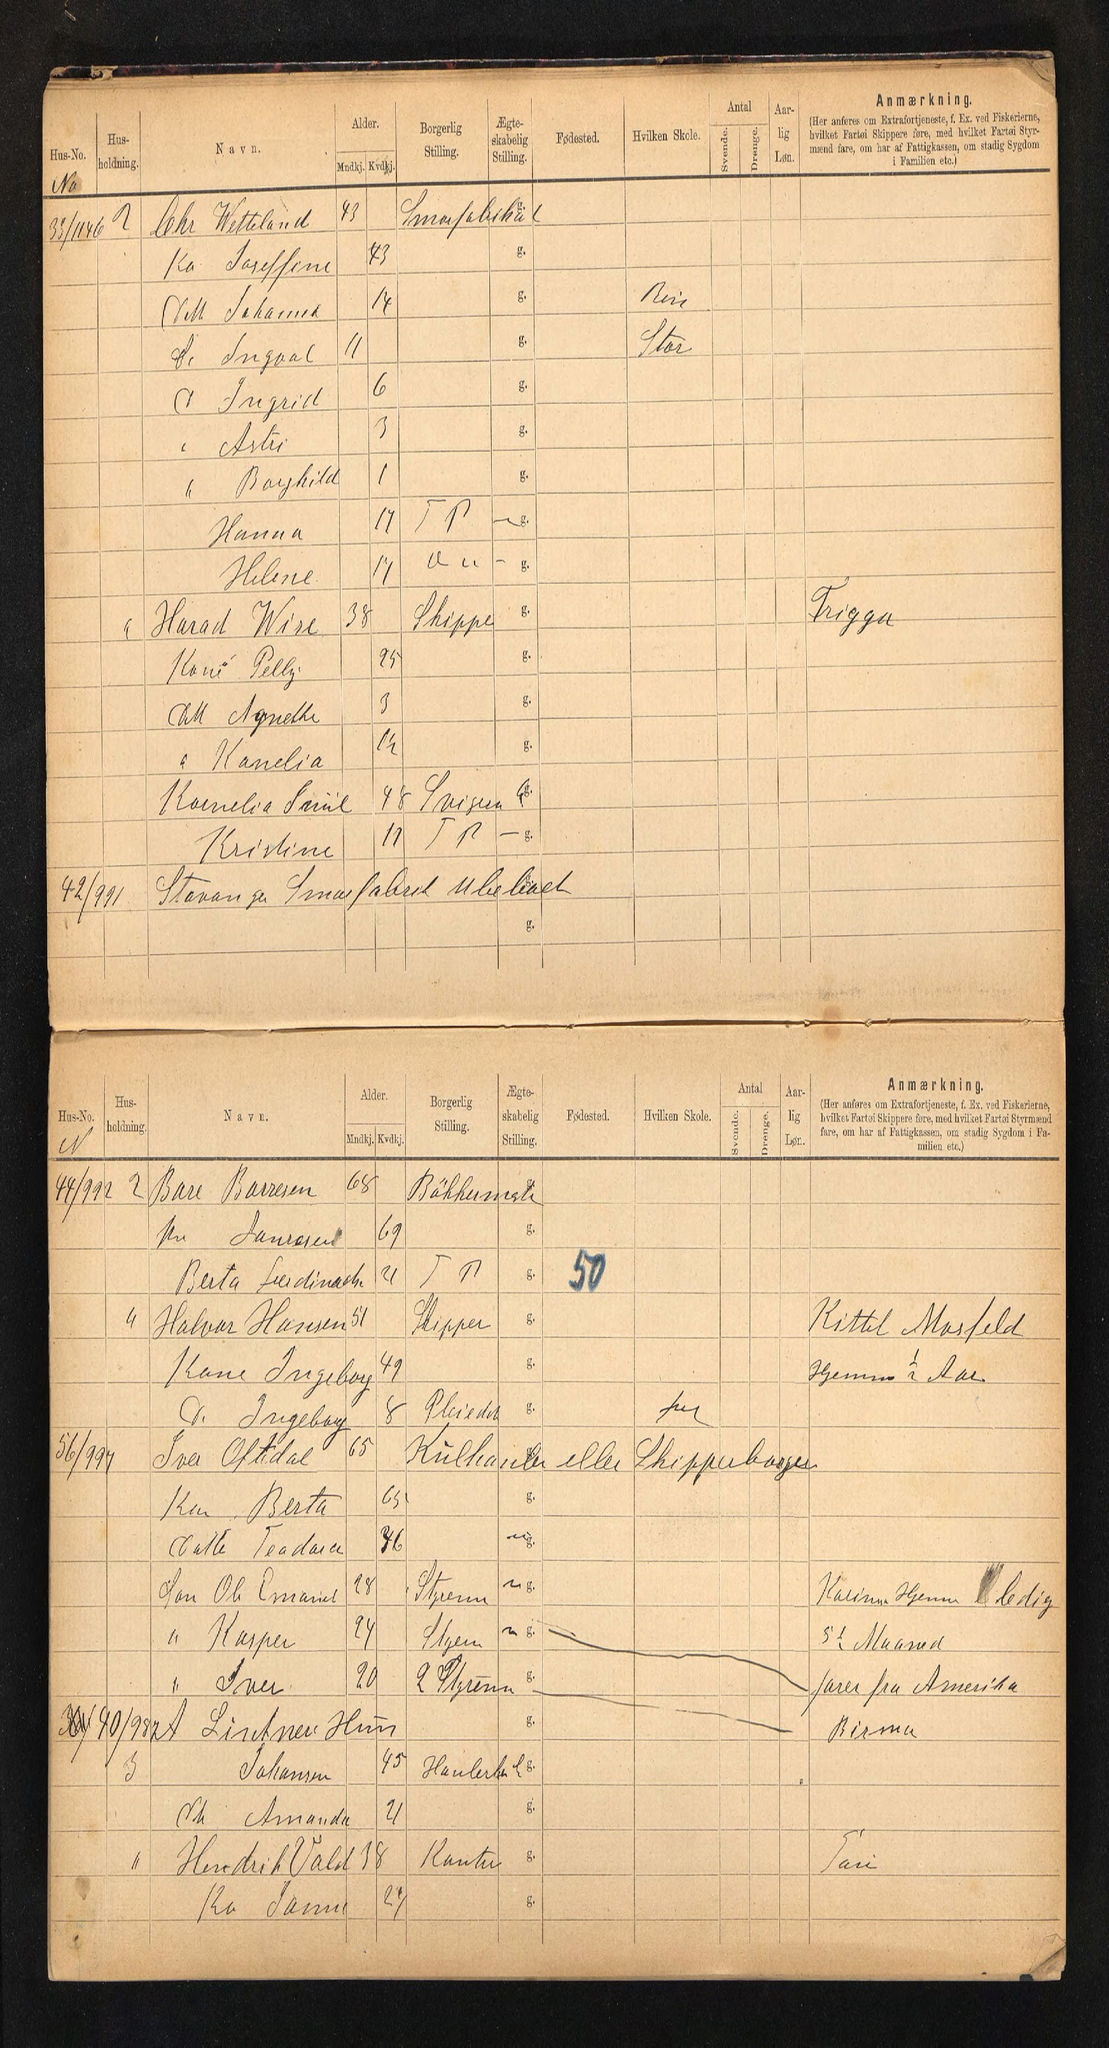 Hus-No. Hus-holdning. Navn. Alder. Mndkj. Kvdkj. Borgerlig Stilling. Ægte-skabelig Stilling. Fødested. Hvilken Skole. Antal Svende. Drenge. Aar-lig Løn. Anmærkning.
(Her anføres om Extrafortjeneste, f. Ex. ved Fiskerierne, hvilket Fartøi Skippere føre, med hvilket Fartøi Styr-mænd fare, om har af Fattigkassen, om stadig Sygdom i Familien etc.)
No
33/1146 2 Chr Wetteland 43 g.
Ko Joseffine 43 g.
Datt Johanna 14 g.
Ingval 11 g. Stor
D Ingrid 6 g.
" Astri 3 g.
" Borghild 1 g.
Hanna 17 T P – g.
Helene 17 – g.
" Harad Wise 38 Skippe g. Frigga
Kone Pelly 25 g.
Datt Agnethe 3 g.
" Kanelia 1½ g.
Kornelia 48 g.
Kristine 17 T P – g.
42/991 Stavanger Smørfabrik ubeboet g.
g.
Hus-No. Hus-holdning. Navn. Alder. Mndkj. Kvdkj. Borgerlig Stilling. Ægte-skabelig Stilling. Fødested. Hvilken Skole. Antal Svende. Drenge. Aar-lig Løn. Anmærkning.
(Her anføres om Extrafortjeneste, f. Ex. ved Fiskerierne, hvilket Fartøi Skippere føre, med hvilket Fartøi Styrmænd fare, om har af Fattigkassen, om stadig Sygdom i Fa-milien etc.)
N
44/992 2 Bore Borresen 68 g.
69 g.
Berta 21 T P g. 50
" Halvor Hansen 51 Skipper g. Kittel Mosfeld
Kone Ingeborg 49 g. Hjemme ½ Aar
D. Ingeborg 8 g.
56/994 Iver Oftedal 65 Kulhanler eller Skipperborger
Kon Berta 65 g.
Datte Teodora 36 g.
Søn Ole Emanuel 28 Styrem u g. Hjemme ledig
" Kasper 24 Styrem u g. 5½ Maaned
" Iver 20 2 Styrem g. farer fra Amerika
40/982 A Lintner Huus g. Birma
3 Johansen 45 g.
Dt Amanda 21 g.
" Hendrik Vald 38 g.
Ko 27 g.